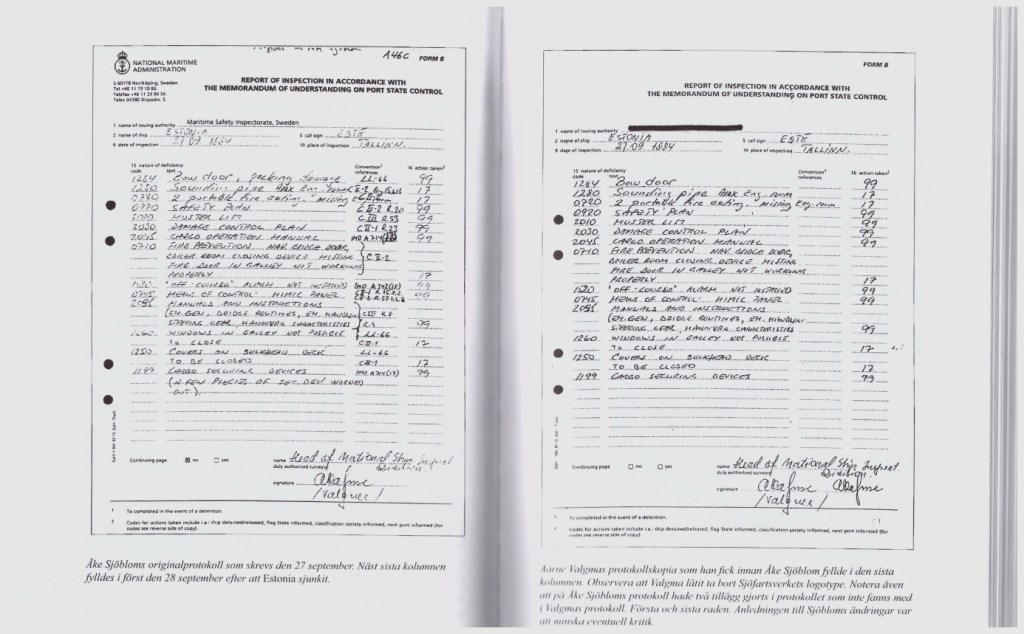 A46C
FORM B
NATIONAL MARITIME
ADMINISTRATION
S-60178 Norrköping, Sweden
Tel +46 11 19 10 00
REPORT OF INSPECTION IN ACCORDANCE WITH
THE MEMORANDUM OF UNDERSTANDING ON PORT STATE CONTROL
1 name of issuing authority Maritime Safety Inspectorate, Sweden
2 name of ship ESTONIA 5 call sign ESTE
9 date of inspection 27.09 10 place of inspection TALLINN.
15 nature of deficiency Convention¹ 16 action taken²
code text references
1284 Bow door, packing LL-66 99
1280 Sounding pipe 17
2 portable fire exting. missing 17
0920 SAFETY PLAN 99
2010 MUSTER LIST 99
2030 DAMAGE CONTROL PLAN 99
2045 CARGO OPERATION MANUAL 99
0710 FIRE PREVENTION NAR BRIDGE DOOR,
BOILER ROOM CLOSING DEVICE MISSING
FIRE DOOR IN GALLEY NOT WORKING
PROPERLY 17
"OFF-COURSE" ALARM NOT INSTALLED 99
MEANS OF CONTROL MIMIC PANEL 99
2055 MANUALS AND INSTRUCTIONS
(EM.GEN, BRIDGE ROUTINES, EM. HANDLIN
STEERING GEAR, MANOUVER CHARACTERISTICS 99
1260 WINDOWS IN GALLEY NOT POSSIBLE LL-66
TO CLOSE 17
1250 COVERS ON BULKHEAD DECK LL-66
TO BE CLOSED 17
1199 CARGO SECURING DEVICES 99
(A FEW PIECES OF SEC. DEV WORNED
OUT).
Continuing page no yes
name Head of National Ship Inspect
duly authorized surveyor Division
signature
/Valgma/
1 To completed in the event of a detention.
2 Codes for actions taken include i.a.: ship detained/released, flag State informed, classification society informed, next port informed (for
codes see reverse side of copy).
Åke Sjöbloms originalprotokoll som skrevs den 27 september. Näst sista kolumnen
fylldes i först den 28 september efter att Estonia sjunkit.
FORM B
REPORT OF INSPECTION IN ACCORDANCE WITH
THE MEMORANDUM OF UNDERSTANDING ON PORT STATE CONTROL
1 name of issuing authority
2 name of ship ESTONIA 5 call sign ESTE
9 date of inspection 27.09 10 place of inspection TALLINN.
15 nature of deficiency Convention¹ 16 action taken²
code text references
1284 Bow door 99
1280 Sounding pipe Aux Eng. room 17
0720 2 portable fire exting. missing Eng. room 17
0920 SAFETY PLAN 99
2010 MUSTER LIST 99
2030 DAMAGE CONTROL PLAN 99
2045 CARGO OPERATION MANUAL 99
0710 FIRE PREVENTION NAR BRIDGE DOOR,
BOILER ROOM CLOSING DEVICE MISSING
FIRE DOOR IN GALLEY NOT WORKING
PROPERLY 17
"OFF-COURSE" ALARM NOT INSTALLED 99
MEANS OF CONTROL MIMIC PANEL 99
2055 MANUALS AND INSTRUCTIONS
(EM.GEN, BRIDGE ROUTINES, EM. HANDLIN
STEERING GEAR, MANOUVER CHARACTERISTICS 99
1260 WINDOWS IN GALLEY NOT POSSIBLE
TO CLOSE 17
1250 COVERS ON BULKHEAD DECK
TO BE CLOSED 17
1199 CARGO SECURING DEVICES 99
Continuing page no yes
name Head of National Ship Inspect.
duly authorized surveyor Division
signature
/Valgma/
1 To completed in the event of a detention.
2 Codes for actions taken include i.a.: ship detained/released, flag State informed, classification society informed, next port informed (for
codes see reverse side of copy).
Aarne Valgmas protokollskopia som han fick innan Åke Sjöblom fyllde i den sista
kolumnen. Observera att Valgma låtit ta bort Sjöfartsverkets logotype. Notera även
att på Åke Sjöbloms protokoll hade två tillägg gjorts i protokollet som inte fanns med
i Valgmas protokoll. Första och sista raden. Anledningen till Sjöbloms ändringar var
att minska eventuell kritik.